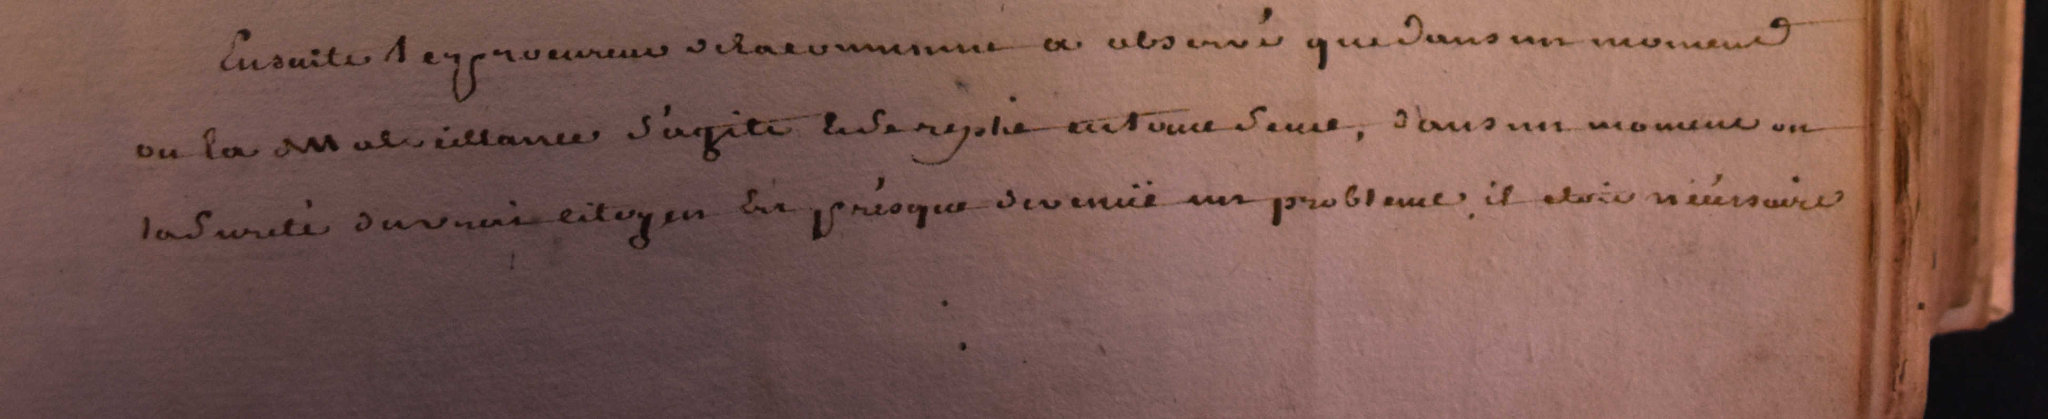 Ensuite le procureur de la commune a observé que dans un moment
ou la Malveillance s'agite et se replie en tout sens, dans un moment ou
la sureté du vrai citoyen est présque devenuë un probleme, il etoit nécéssaire